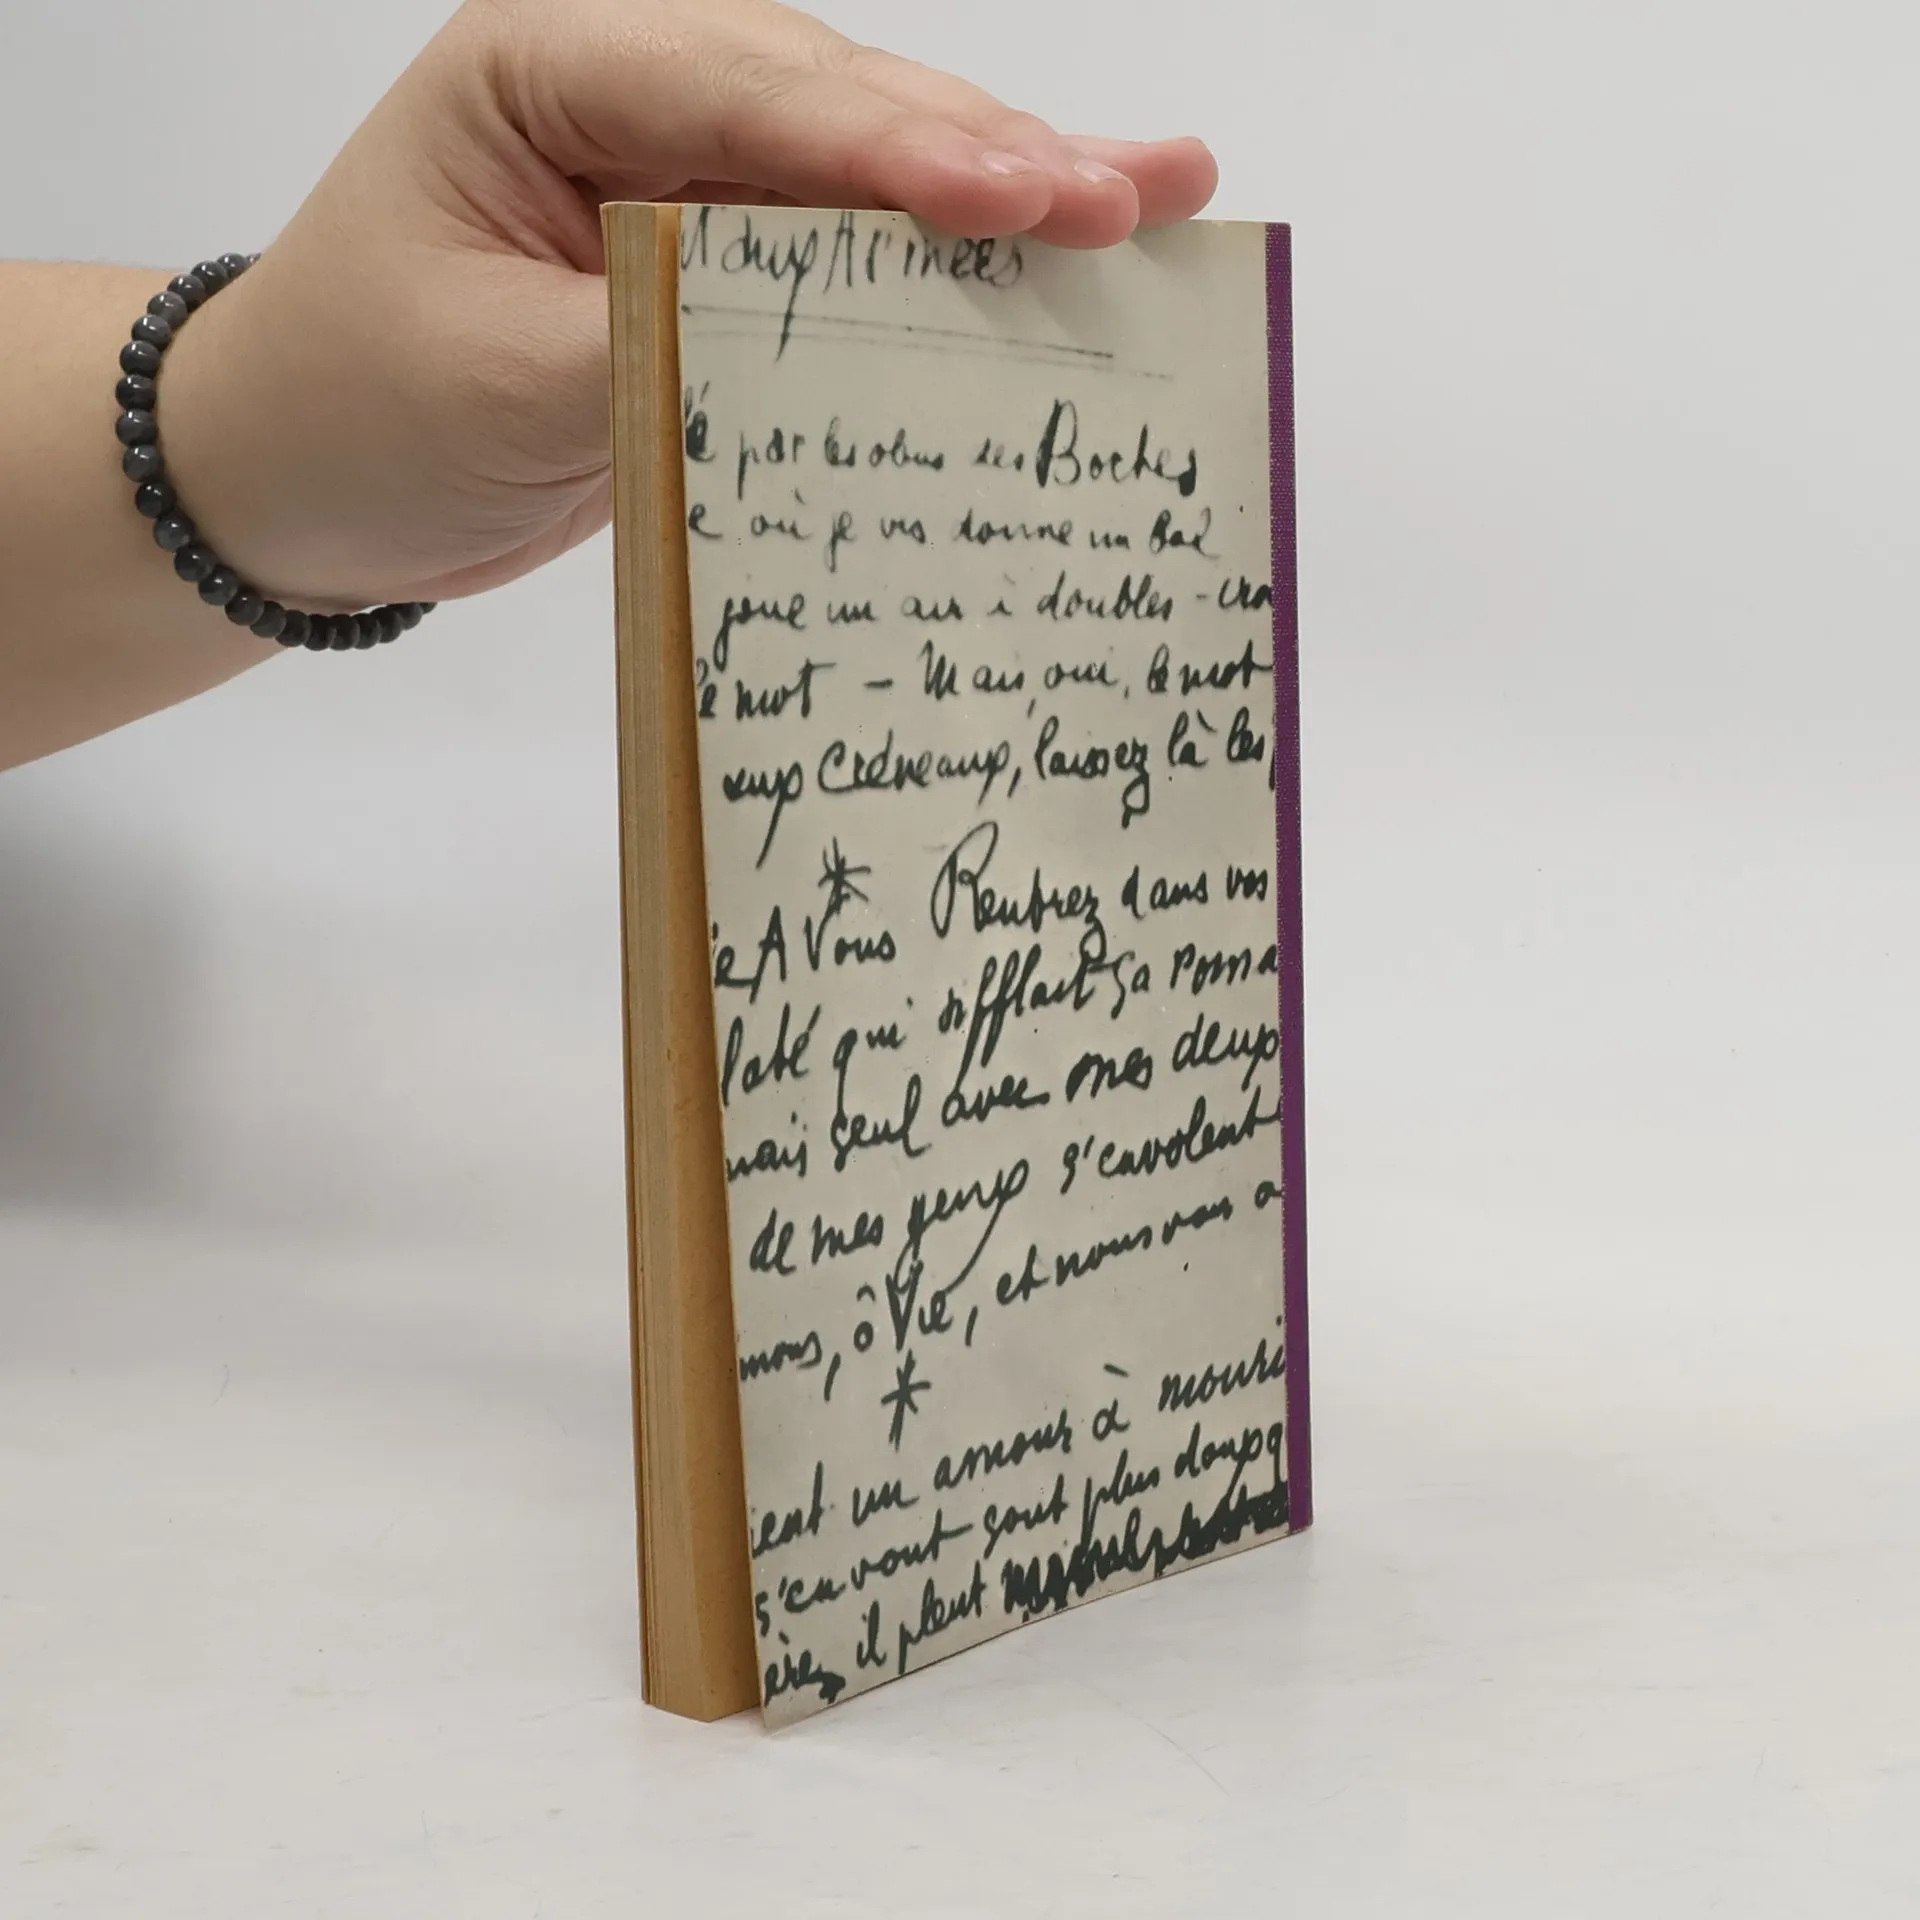 aux Armées
é par les obus des Boches
e où je vis donne un bal
joue un air à doubles-cro
le mot - Mais, oui, le mot
aux Créneaux, laissez là les
*
e A Vous Rentrez dans vos
laté qui sifflait sa roma
mais seul avec mes deux
de mes yeux s'envolent
mons, ô Vie, et nous vou a
*
ient un amour à mouri
s'en vont sont plus doux q
il pleut